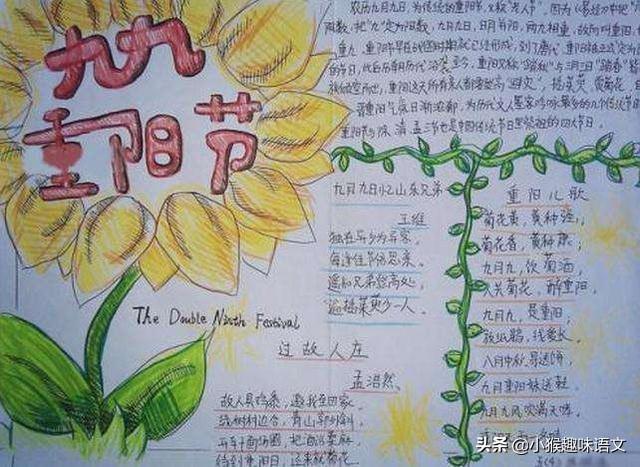 九九
重阳节
农历九月九日，为传统的重阳节，又称"老人节"。因为《易经》中把"
阳数，把"九"定为阳数，九月九日，日月并阳，两九相重，故而叫重阳，
重九，重阳节早在战国时期就已经形成，到了唐代，重阳被正式定
的节日，此后历朝历代沿袭至今，重阳又称"踏秋"与三月三日"踏春"
重阳这天所有亲人都要登高"避灾"，插茱萸、饮菊花
重阳与除、清、盂三节也是中国传统节日里祭祖的四大节日。
九月九日忆山东兄弟
王维
独在异乡为异客，
每逢佳节倍思亲。
遥知兄弟登高处，
遍插茱萸少一人。
The Double Ninth Festival
过故人庄
孟浩然
故人具鸡黍，邀我至田家。
绿树村边合，青山郭外斜。
开轩面场圃，把酒话桑麻。
待到重阳日，还来就菊花。
重阳儿歌
菊花黄，黄种强；
菊花香，黄种康；
九月九，饮菊酒，
人共菊花，醉重阳。
九月九，是重阳，
放纸鹞，线爱长。
八月中秋
九月重阳
九月九风吹满天啸
头条 @小猴趣味语文